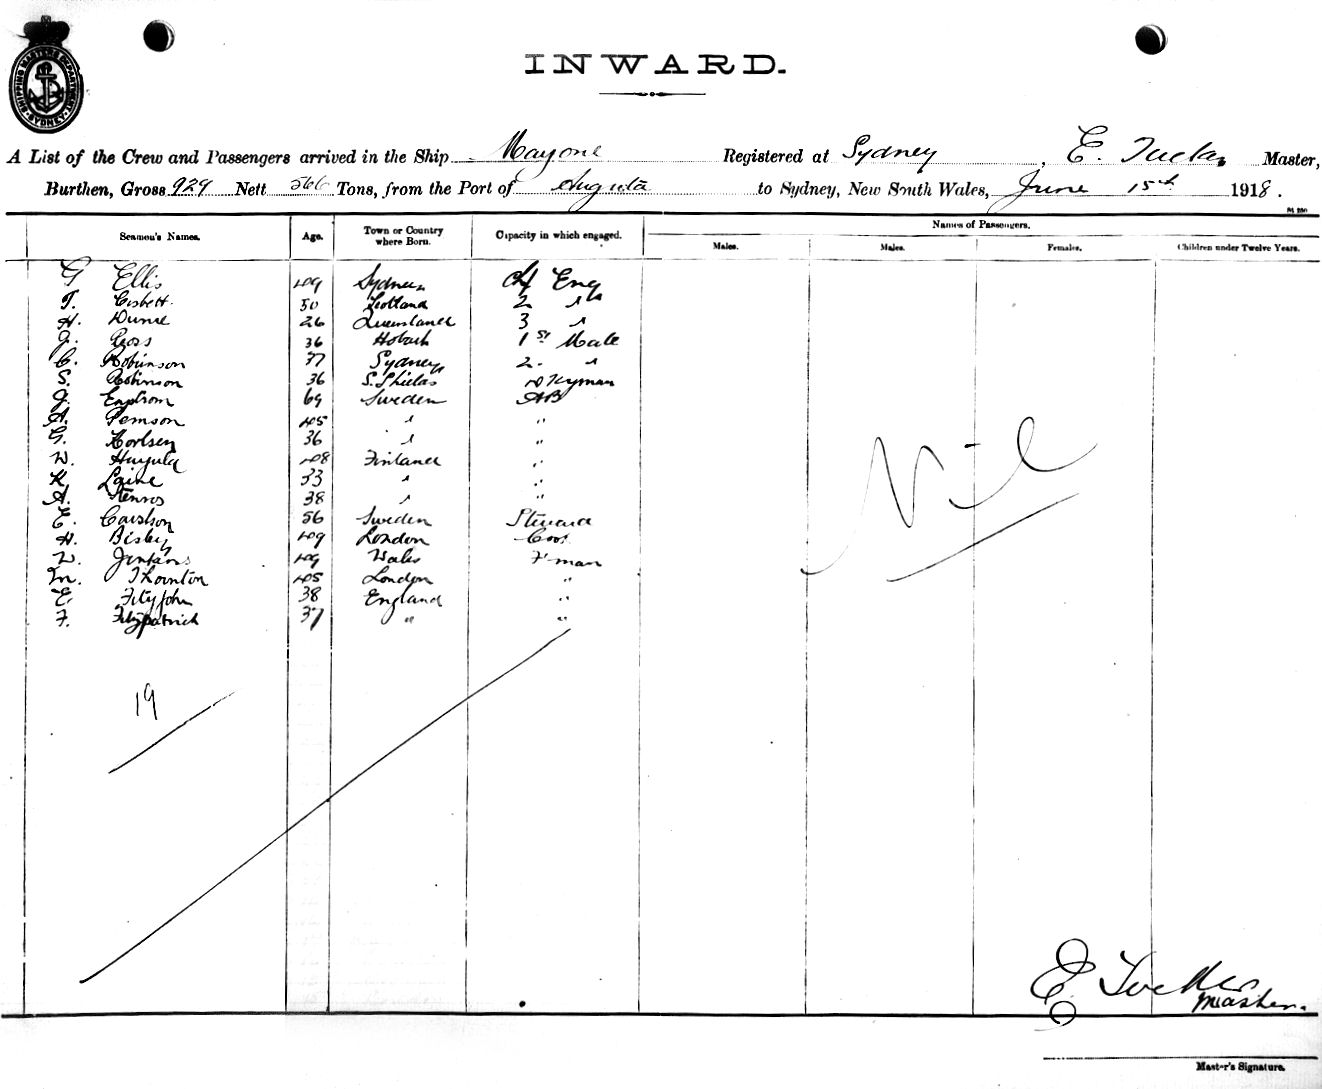 SHIPPING MASTERS DEPARTMENT SYDNEY
INWARD.
A List of the Crew and Passengers arrived in the Ship Registered at Sydney, E. Tucker Master,
Burthen, Gross 929 Nett 566 Tons, from the Port of to Sydney, New South Wales, June 15th 1918.
Seamen's Names. Age. Town or Country where Born. Capacity in which engaged. Names of Passengers.
Males. Males. Females. Children under Twelve Years.
G Ellis 49 Sydney Chf Eng
T. 50 Scotland 2 "
H. 26 Queensland 3 "
J. Ross 36 Hobart 1st Mate
C. Robinson 37 Sydney 2. "
S. Robinson 36 S. Shields
J. 69 Sweden AB
A. 45 " "
G. 36 " "
W. 48 Finland "
K Laine 33 " "
A. Stenros 38 " "
E. Carlson 56 Sweden Steward
H. Bisley 49 London Cook
W. Jenkins 49 Wales F'man
M. Thornton 45 London "
E. Fitzjohn 38 England "
F. Fitzpatrick 37 " "
Nil
19
E Tucker
Master.
Master's Signature.